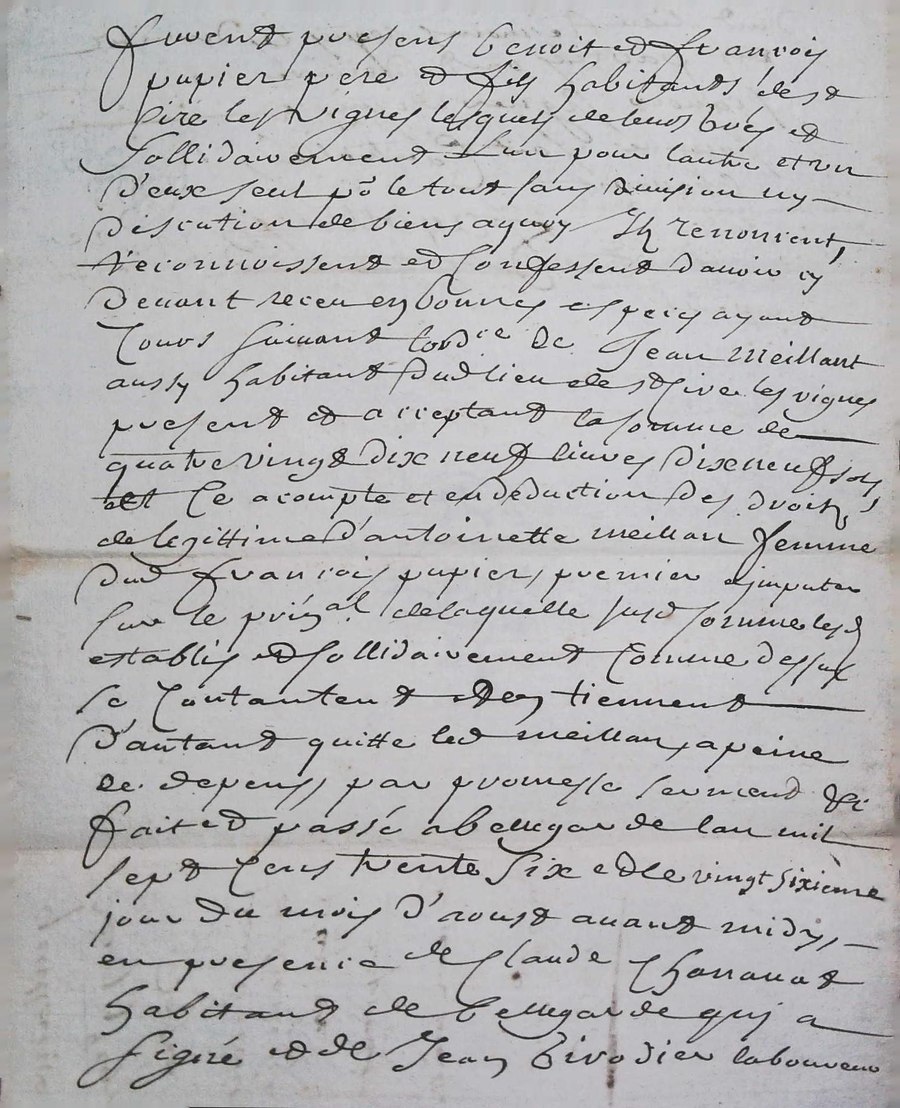 furent presens benoit et francois
papier pere et fils habitants de st
Cire les vignes lesquels de leurs grés et
sollidairement l'un pour lautre et un
d'eux seul po le tout sans division ny
discution de biens aquoy Ils renoncent,
reconnoissent et Confessent d'avoir cy
devant receu en bonnes especes ayant
Cours suivant lordce de Jean Meillant
aussy habitant dud lieu de st Cire les vignes
present et acceptant la somme de
quatre vingt dix neuf livres dix neuf sols
Ce acompte et en deduction des droits
de legittime d'antoinette meillan femme
dud francois papier, premier a imputer
sur le prinal. de laquelle susd somme lesd
establis et sollidairement Comme dessus
se Contantent et en tiennent
d'autant quitte led meillan, a peine
de depens, par promesse serment &c
fait et passé a bellegarde lan mil
sept Cens trente Six et le vingt sixieme
jour du mois d'aoust avant midy,
en presence de Claude
habitant de bellegarde qui a
signé et de Jean laboureur